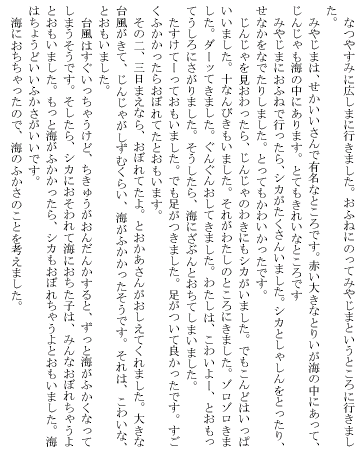 なつやすみに広しまに行きました。おふねにのってみやじまというところに行きまし
た。
　みやじまは、せかいいさんで有名なところです。赤い大きなとりいが海の中にあって、
じんじゃも海の中にあります。とてもきれいなところです
　みやじまにおふねで行ったら、シカがたくさんいました。シカとしゃしんをとったり、
せなかをなでたりしました。とってもかわいかったです。
　じんじゃを見おわったら、じんじゃのわきにもシカがいました。でもこんどはいっぱ
いいました。十なんびきもいました。それがわたしのところにきました。ゾロゾロきま
した。ダーッてきました。ぐんぐんおしてきました。わたしは、こわいよー、とおもっ
てうしろにさがりました。そうしたら、海にざぶんとおちてしまいました。
　たすけてーっておもいました。でも足がつきました。足がついて良かったです。すご
くふかかったらおぼれてたとおもいます。
　その二、三日まえなら、おぼれてたよ。とおかあさんがおしえてくれました。大きな
台風がきて、じんじゃがしずむくらい、海がふかかったそうです。それは、こわいな、
とおもいました。
　台風はすぐいっちゃうけど、ちきゅうがおんだんかすると、ずっと海がふかくなって
しまうそうです。そしたら、シカにおそわれて海におちた子は、みんなおぼれちゃうよ
とおもいました。もっと海がふかかったら、シカもおぼれちゃうよとおもいました。海
はちょうどいいふかさがいいです。
　海におちちゃったので、海のふかさのことを考えました。